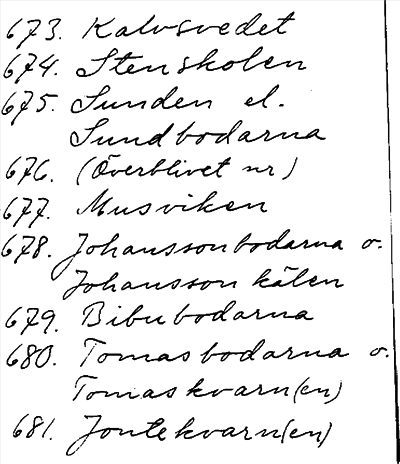 673. Kalvsvedet
674. Stenskolen
675. Sunden el.
Sundbodarna
676. (Överblivet nr)
677. Musviken
678. Johanssonbodarna o.
Johanssonkälen
679. Bibubodarna
680. Tomasbodarna o.
Tomaskvarn(en)
681. Jontekvarn(en)